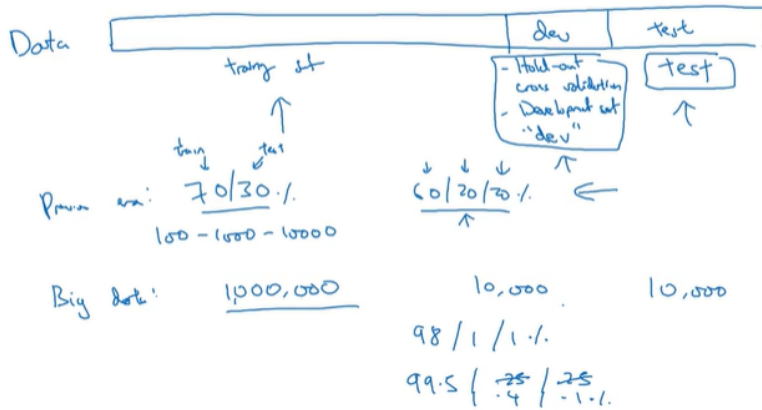 Data
dev
test
training set
- Hold-out
cross validation
- Development set
"dev"
test
train
test
Previous era: 70/30 %
60/20/20 %
100 - 1000 - 10000
Big data: 1,000,000
10,000
10,000
98 / 1 / 1 %
99.5 / 25 / 25
.4 .1 %